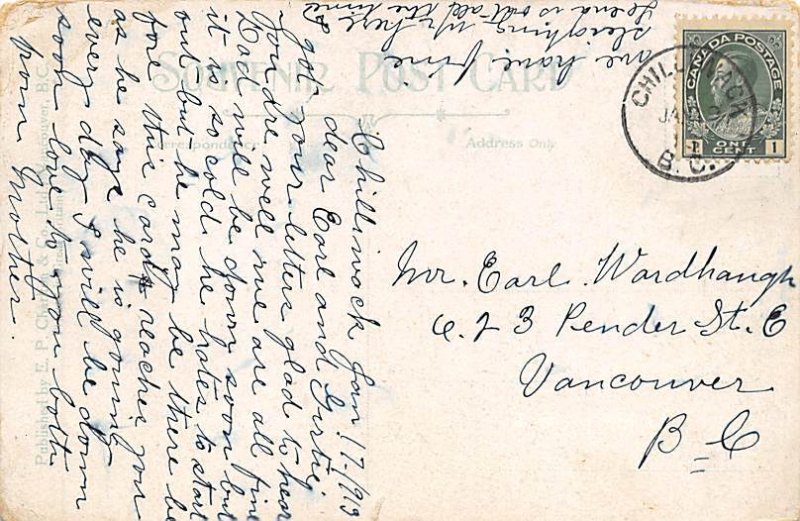 SOUVENIR POST CARD
Correspondence
Address Only
CANADA POSTAGE
1 ONE CENT 1
CHILLIWACK
JA
B. C.
Mr. Earl Wardhaugh
623 Pender St. E
Vancouver
B C
Chilliwack Jan 17-1913
dear Earl and Girtie
got your letters glad to hear
you are well we are all fine
Dad will be down soon but
it is so cold he hates to start
out but he may be there be
fore this card reaches you
as he says he is going
every day I will be down
soon love to you both
from Mother.
we have fine
sleighing up here
Send is out all the time
Published by E. P. & Co., Ltd., Vancouver, B.C.